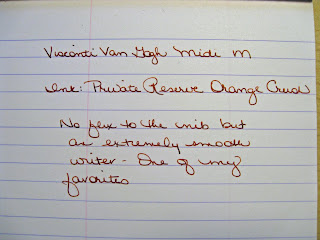 Visconti Van Gogh Midi M
Ink: Private Reserve Orange Crush
No flex to the nib but
an extremely smooth
writer - One of my
favorites